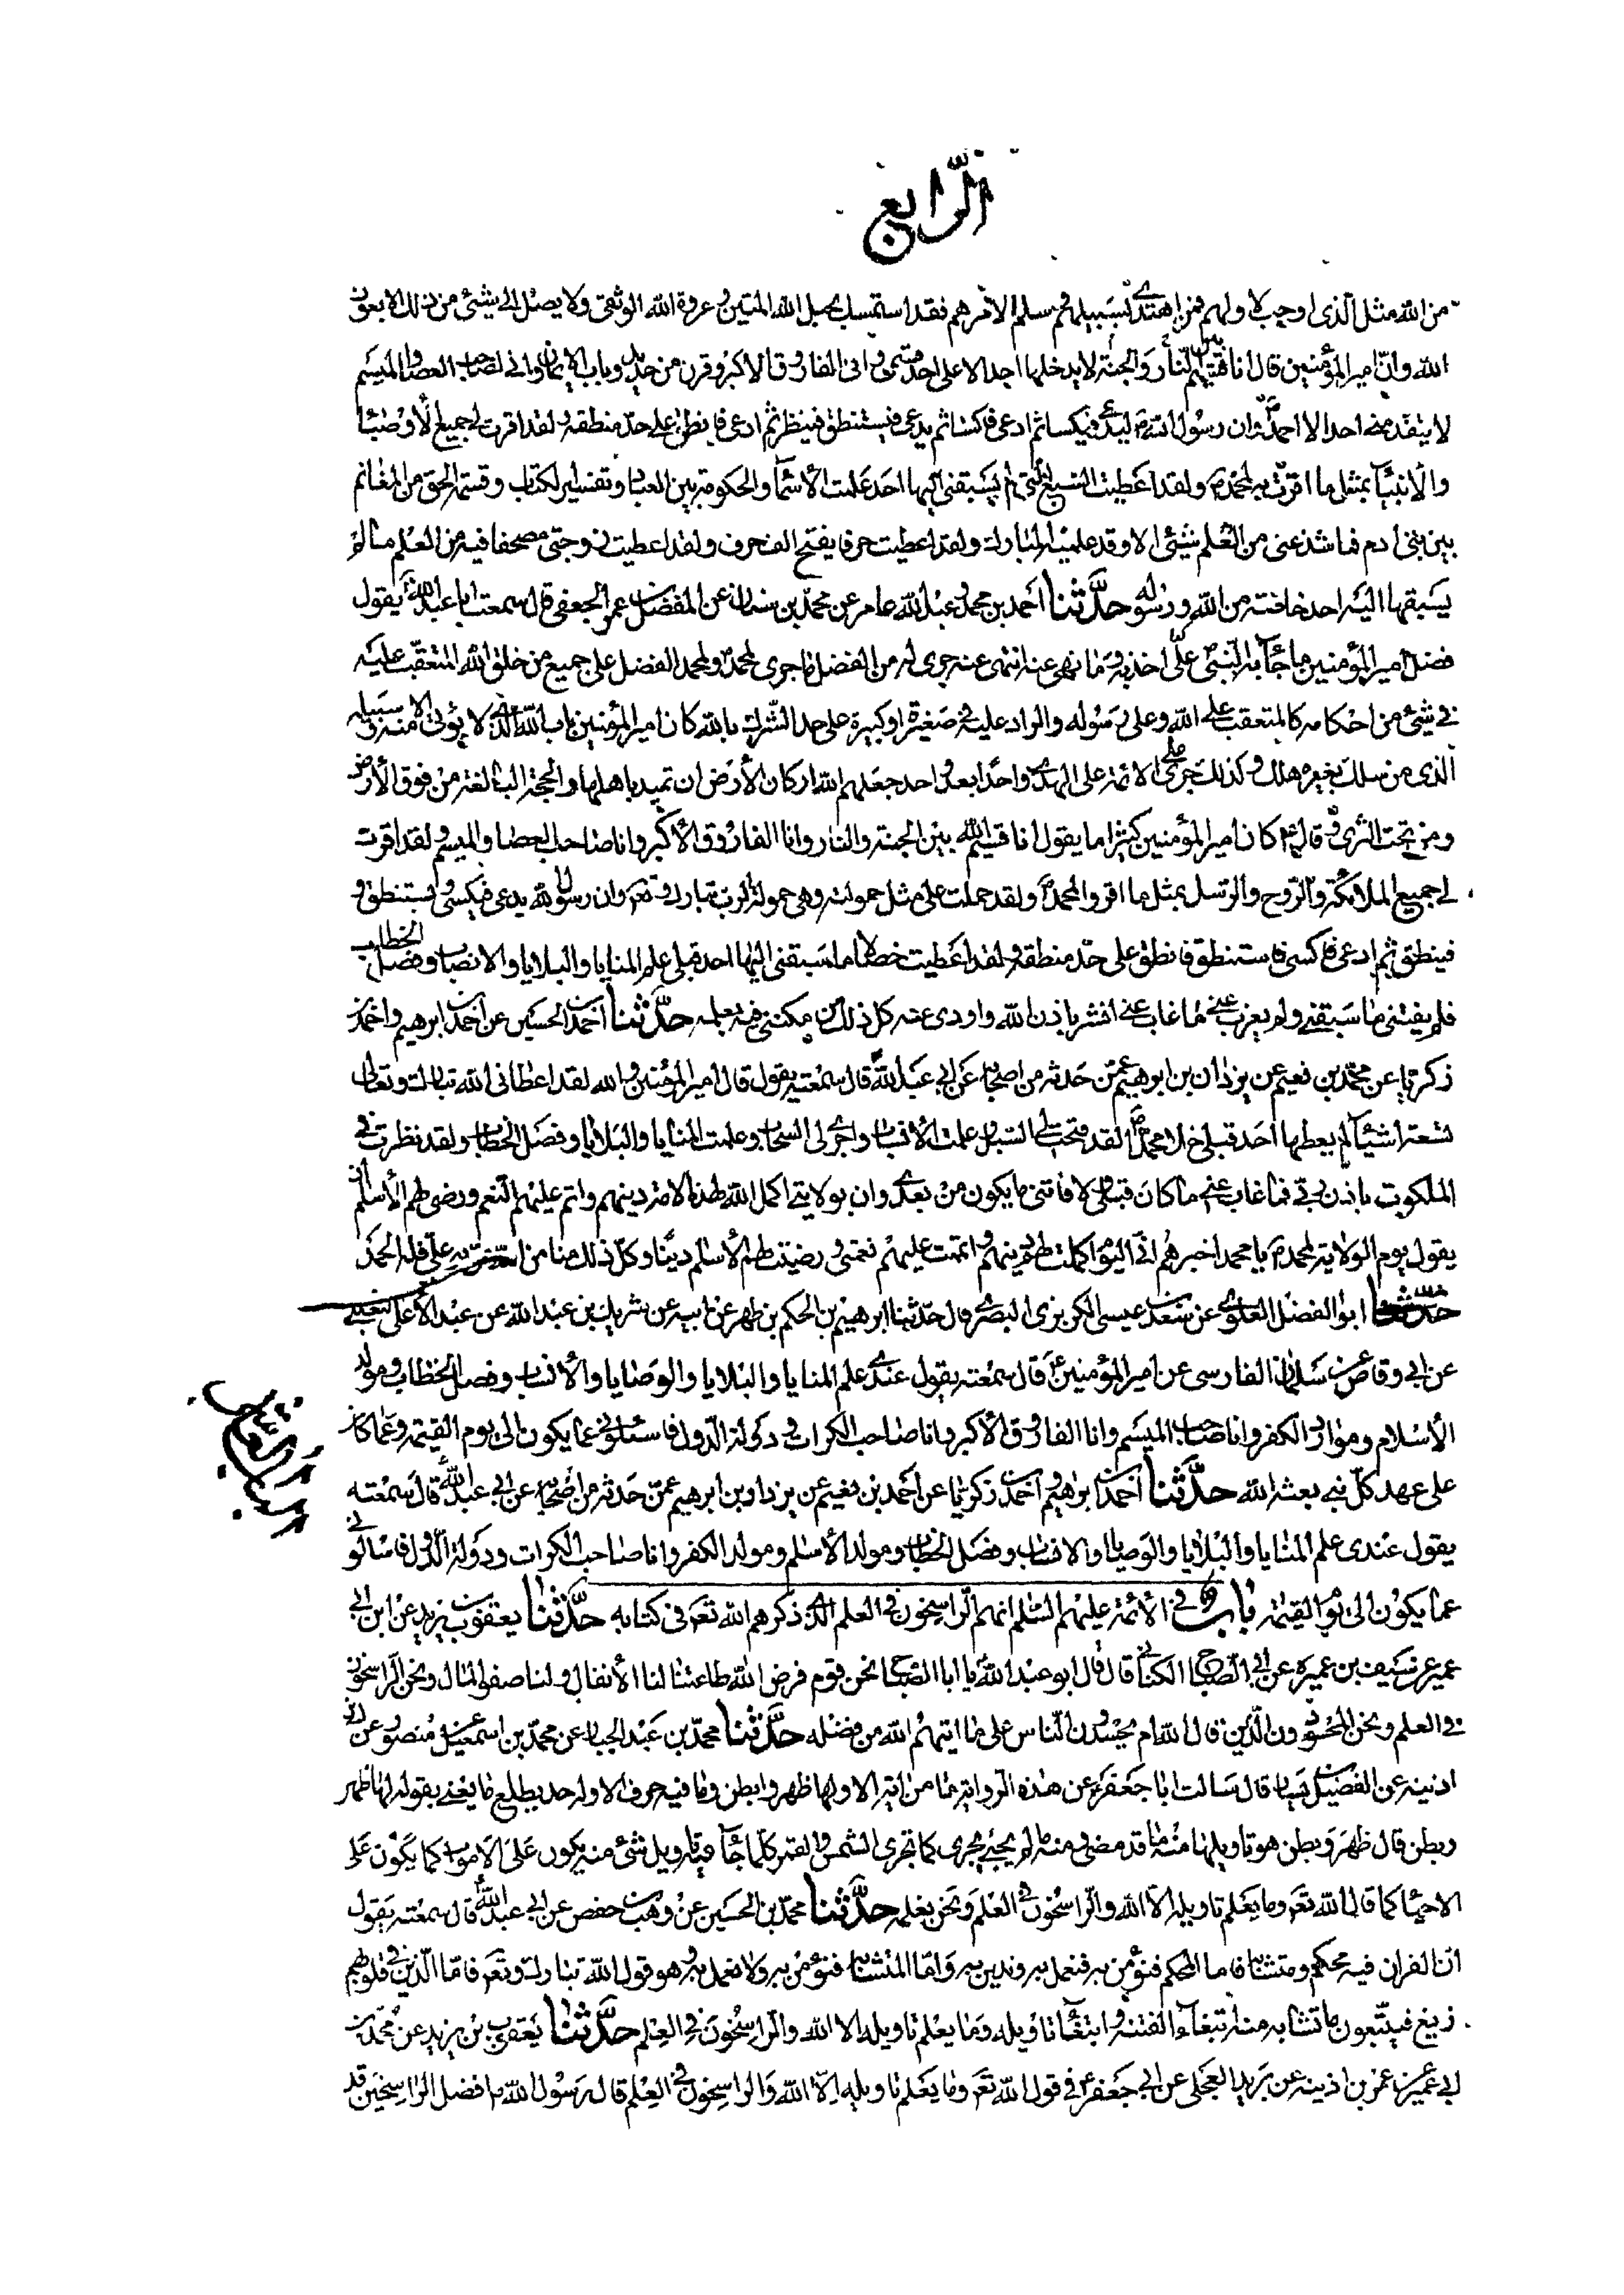 الرابع
من الله مثل الذى اوجب لاولهم فمن اهتدى بسبيلهم وسلم لامرهم فقد استمسك بحبل الله المتين وعروة الله الوثقى ولا يصل الى شيئ من ذلك الا بعون
الله وان امير المؤمنين قال انا قسيم بين النار والجنة لا يدخلها احد الا على احد قسمى وانى الفاروق الاكبر وقرن من حديد وباب الايمان وانى لصاحب العصا والميسم
لا يتقدمنى احد الا احمد وان رسول الله ليدعى فيكسا ثم ادعى فاكسا ثم يدعى فيستنطق فينطق ثم ادعى فانطق على حد منطقه ولقد اقرت لى جميع الاوصيا
والانبيآء بمثل ما اقرت به لمحمد ولقد اعطيت السبع التى لم يسبقنى اليها احد علمت الاسمآ والحكومة بين العباد وتفسير الكتاب وقسمة الحق من المغانم
بين بنى ادم فما شذ عنى من العلم شيئ الا وقد علمنيه المبارك ولقد اعطيت حرفا يفتح الف حرف ولقد اعطيت زوجتى مصحفا فيه من العلم ما لم
يسبقها اليه احد خاصة من الله ورسوله حدثنا احمد بن محمد وعبد الله عامر عن محمد بن سنان عن المفضل بن عمر الجعفى قال سمعت ابا عبد الله يقول
فضل امير المؤمنين ما جآء به النبى على اخذ به وما نهى عنه انتهى عنه جرى له من الفضل ما جرى لمحمد ولمحمد الفضل على جميع من خلق الله المتعقب عليه
فى شيئ من احكامه كالمتعقب على الله وعلى رسوله والراد عليه فى صغيرة او كبيرة على حد الشرك بالله كان امير المؤمنين باب الله الذى لا يؤتى الا منه وسبيله
الذى من سلك بغيره هلك وكذلك جرى على الائمة على الهدى واحدا بعد واحد جعلهم الله اركان الارض ان تميد باهلها والحجة البالغة من فوق الارض
ومن تحت الثرى وقال كان امير المؤمنين كثيرا ما يقول انا قسيم الله بين الجنة والنار وانا الفاروق الاكبر وانا صاحب العصا والميسم ولقد اقرت
لى جميع الملائكة والروح والرسل بمثل ما اقروا لمحمد ولقد حملت على مثل حمولته وهى حمولة الرب تبارك وتعـ وان رسول الله يدعى فيكسى ويستنطق و
فينطق ثم ادعى فاكسى فاستنطق فانطق على حد منطقه ولقد اعطيت خصالا ما سبقنى اليها احد قبلى علم المنايا والبلايا والانساب وفصل الخطاب
فلم يفتنى ما سبقنى ولم يعزب عنى ما غاب عنى انشر باذن الله واودى عنه كل ذلك من مكننى فيه بعلمه حدثنا احمد بن الحسين عن احمد بن ابرهيم واحمد بن
زكريا عن محمد بن نعيم عن يزدان بن ابرهيم عمن حدثه من اصحابه عن ابى عبد الله قال سمعته يقول قال امير المؤمنين والله لقد اعطانى الله تبارك وتعالى
تسعة اشيآء لم يعطها احد قبلى خلا محمد لقد فتحت لى السبل وعلمت الانساب واجرى لى السحاب وعلمت المنايا والبلايا وفصل الخطاب ولقد نظرت فى
الملكوت باذن ربى فما غاب عنى ما كان قبلى ولا فاتنى ما يكون من بعدى وان بولايتى اكمل الله لهذه الامة دينهم واتم عليهم النعم ورضى لهم الاسلم اذ
يقول يوم الولاية لمحمد يا محمد اخبرهم انى اليوم اكملت لهم دينهم واتممت عليهم نعمتى ورضيت لهم الاسلم دينا وكل ذلك منا من الله من به على فله الحمد
حدثنا ابو الفضل العلوى عن سعد بن عيسى الكربزى البصرى قال حدثنا ابرهيم بن الحكم بن ظهر عن ابيه عن شريك بن عبد الله عن عبد الاعلى الثعلبى
عن ابى وقاص عن سلمان الفارسى عن امير المؤمنين قال سمعته يقول عندى علم المنايا والبلايا والوصايا والانساب وفصل الخطاب ومولد
الاسلام ومولد الكفر وانا صاحب الميسم وانا الفاروق الاكبر وانا صاحب الكرات ودولة الدول فاسئلونى عما يكون الى يوم القيمة وعما كان
على عهد كل نبى بعثه الله حدثنا احمد بن ابرهيم واحمد بن زكريا عن احمد بن نعيم عن يزداد بن ابرهيم عمن حدثه من اصحابه عن ابى عبد الله قال سمعته
يقول عندى علم المنايا والبلايا والوصايا والانساب وفصل الخطاب ومولد الاسلم ومولد الكفر وانا صاحب الكرات ودولة الدول فاسالونى
عما يكون الى يوم القيمة باب فى الائمة عليهم السلم انهم الراسخون فى العلم الذى ذكرهم الله تعـ فى كتابه حدثنا يعقوب بن يزيد عن ابن ابى
عمير عن سيف بن عميرة عن ابى الصباح الكنانى قال قال ابو عبد الله يا ابا الصباح نحن قوم فرض الله طاعتنا لنا الانفال ولنا صفو المال ونحن الراسخون
فى العلم ونحن المحسودون الذين قال الله ام يحسدون الناس على ما اتيهم الله من فضله حدثنا محمد بن عبد الجبار عن محمد بن اسمعيل عن منصور عن ابن
اذنيه عن الفضيل بن يسار قال سالت ابا جعفر عن هذه الرواية ما من اية الا ولها ظهر وبطن وما فيه حرف الا وله حد يطلع ما يعنى بقوله لها ظهر
وبطن قال ظهر وبطن هو تاويلها منه ما قد مضى ومنه ما لم يجئ يجرى كما تجرى الشمس والقمر كلما جآء فيه تاويل شئ منه يكون على الاموات كما يكون على
الاحيا كما قال الله تعـ وما يعلم تاويله الا الله والراسخون فى العلم ونحن نعلمه حدثنا محمد بن الحسين عن وهيب بن حفص عن ابى عبد الله قال سمعته يقول
ان القران فيه محكم ومتشابه فاما المحكم فنؤمن به فنعمل به وندين به واما المتشابه فنؤمن به ولا نعمل به وهو قول الله تبارك وتعـ فاما الذين فى قلوبهم
زيغ فيتبعون ما تشابه منه ابتغآء الفتنة وابتغآء تاويله وما يعلم تاويله الا الله والراسخون فى العلم حدثنا يعقوب بن يزيد عن محمد بن
ابى عمير عن عمر بن اذينه عن بريد العجلى عن ابى جعفر فى قول الله تعـ وما يعلم تاويله الا الله والراسخون فى العلم قال رسول الله افضل الراسخين قد